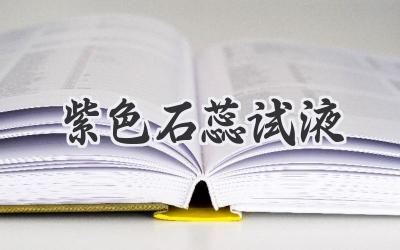 紫色石蕊试液